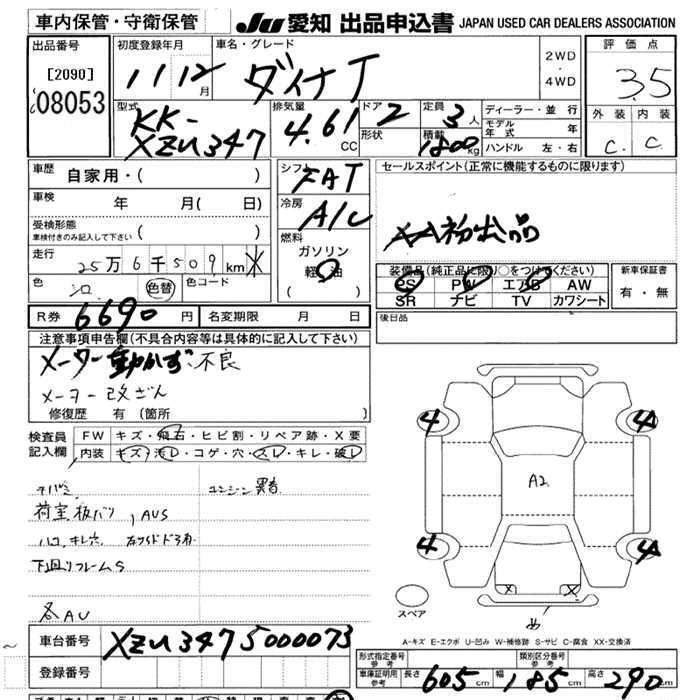 車内保管・守衛保管
JU 愛知 出品申込書 JAPAN USED CAR DEALERS ASSOCIATION
出品番号
[2090]
08053
初度登録年月
11 12 月
車名・グレード
ダイナ T
2WD
・
4WD
評価点
3.5
外装 内装
C. C.
型式
KK-
XZU347
排気量
4.61 CC
ドア 2
形状
定員 3 人
積載 1800 kg
ディーラー・並行
モデル年式 年
ハンドル 左・右
車歴
自家用・( )
車検 年 月( 日)
受検形態
車検付きのみ記入して下さい ( )
走行 25万6千509km
色 シロ 色替 色コード
シフト FAT
冷房 A/C
燃料
ガソリン
軽油
( )
セールスポイント(正常に機能するものに限ります)
初出品
装備品(純正品に限り○をつけてください)
PS PW エアB AW
SR ナビ TV カワシート
新車保証書
有・無
R券 6690 円 名変期限 月 日
後日品
注意事項申告欄(不具合内容等は具体的に記入して下さい)
メーター動かず不良
メーター改ざん
修復歴 有(箇所 )
検査員
記入欄
FW キズ・飛石・ヒビ割・リペア跡・X要
内装 キズ・汚レ・コゲ・穴・スレ・キレ・破レ
エンジン異音
荷室板バリ , AUS
下廻りフレームS
各AU
4 A
4 A
A2
X X
スペア
A-キズ E-エクボ U-凹み W-補修跡 S-サビ C-腐食 XX-交換済
車台番号 XZU347 5000073
登録番号
形式指定番号
参考
類別区分番号
参考
車庫証明用
参考
長さ 605 cm 幅 185 cm 高さ 290 cm